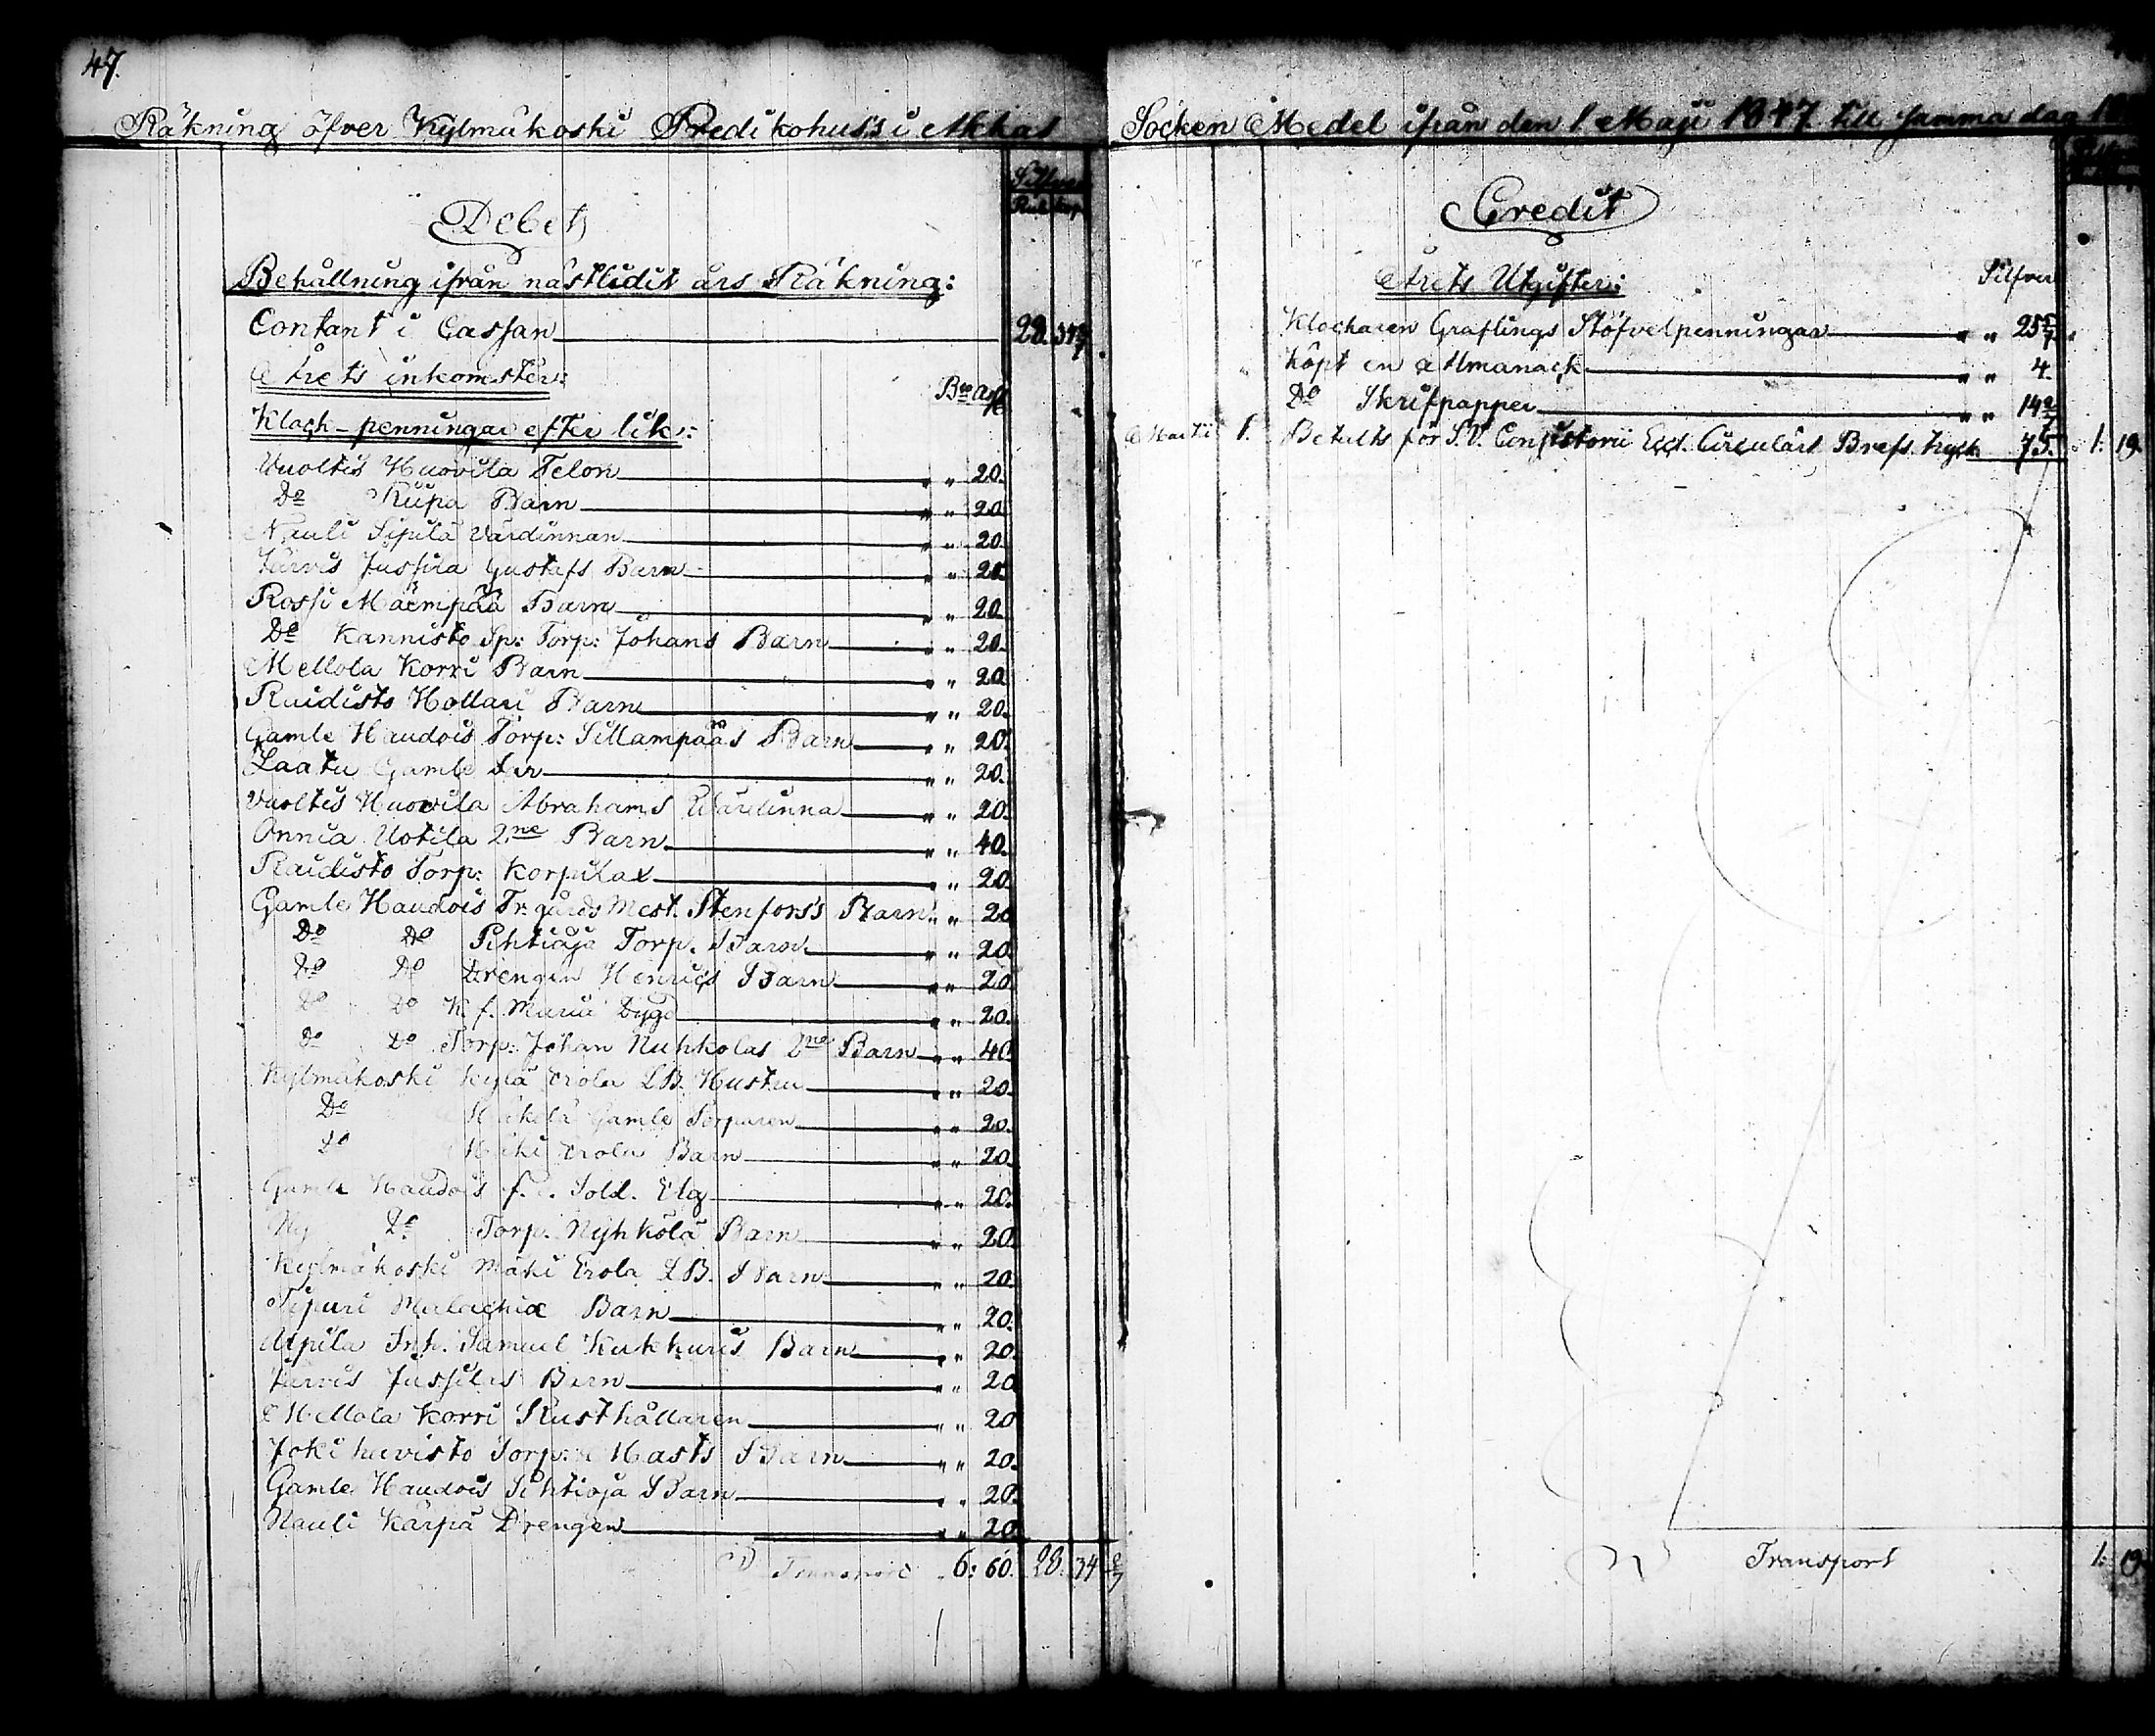 47.
Räkning öfver Kylmäkoski Predikohus's i Akkas
Silfver
Rub. Kop.
Debet
Behållning ifrån nästlidit års Räkning:
Contant i Cassan 28. 34 2/7
Årets inkomster:
Bco Ass.
Klock-penningar efter lik:
Vuoltis Huovila Felon " " 20.
Do Rüpa Barn " " 20.
Nauli Sipilä Värdinnan " " 20.
Järvis Jussila Gustafs Barn " " 20.
Rossi Mäenpää Barn " " 20.
Do Kannisto Sp: Torp: Johans Barn " " 20.
Mellola Korri Barn " " 20.
Raidisto Hollari Barn " " 20.
Gamle Haudois Torp: Sillampääs Barn " " 20.
Laatu Gamle " " 20.
Vuoltis Huovila Abrahams Wärdinna " " 20.
Annia Uotila 2ne Barn " " 40.
Raidisto Torp: Korpilax " " 20.
Gamle Haudois Tr:gårds Mest. Stenfors's Barn " " 20
Do Do Pihtioja Torp. Barn " " 20.
Do Do Drengen Henrics Barn " " 20
Do Do K. f. Maria Dygd " " 20.
Do Do Torp: Johan Nuhkolas 2ne Barn " " 40
Kylmäkoski Kylä Erola LB. Hustru " " 20.
Do Mäkelä Gamle Torparen " " 20.
Do Mäki Erola Barn " " 20.
Gamle Haudois f. d. Sold. Elg " " 20.
Ny Do Torp. Nyhkölä Barn " " 20.
Kylmäkoski Mäki Erola LB. Barn " " 20.
Sipuri Malachia Barn " " 20.
Alpila Inh. Samuel Kukkuris Barn " " 20.
Järvis Jussilas Barn " " 20
Mellola Korri Rusthållaren " " 20
Jokihavisto Torp: Masts Barn " " 20.
Gamle Haudois Pihtioja Barn " " 20.
Nauli Kärpä Drengen " " 20
Transport 6: 60. 28. 34 2/7
Socken Medel ifrån den 1 Maji 1847 till samma dag
Credit
Årets Utgifter:
Silfver
Klockaren Graflings Stöfvelpenningar " " 25 5/7.
Köpt en Allmanack " " 4.
Do Skrifpapper " " 14 2/7
Martii 1. Betalts för S. V. Consistorii Eccl. Circulärs Brefs tryck 75. 1: 19.
Transport 1: 19.